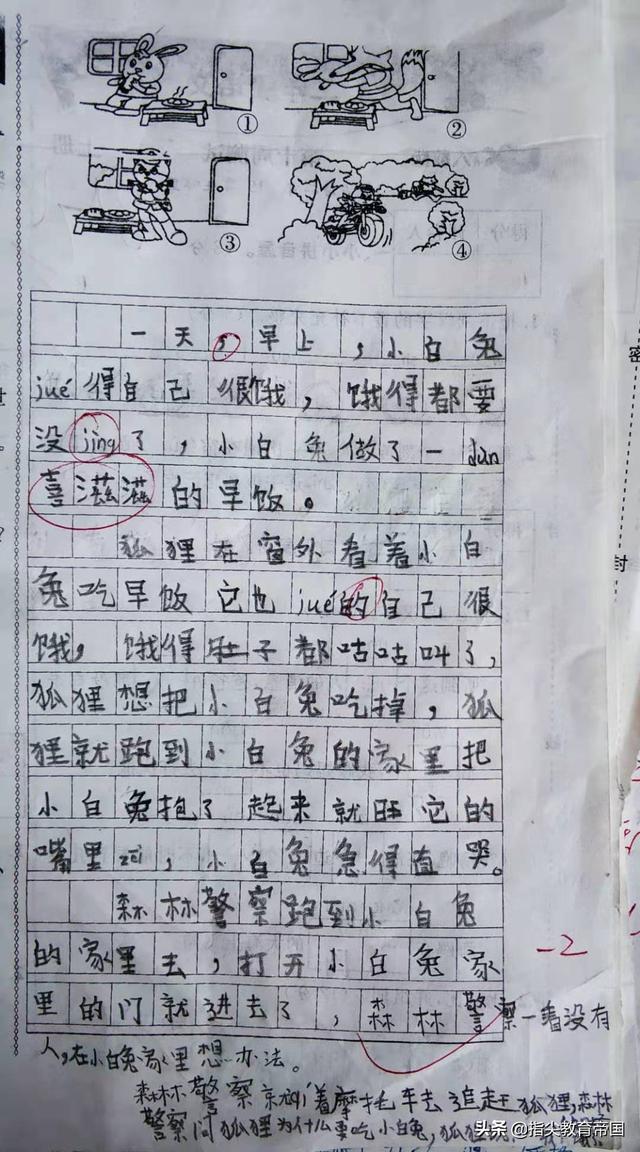 ①
②
③
④
一天,早上,小白兔
jué得自己很饿,饿得都要
没jìng了,小白兔做了一dùn
喜滋滋的早饭。
狐狸在窗外看着小白
兔吃早饭它也jué的自己很
饿,饿得肚子都咕咕叫了,
狐狸想把小白兔吃掉,狐
狸就跑到小白兔的家里把
小白兔抱了起来就旺它的
嘴里,小白兔急得直哭。
森林警察跑到小白兔
的家里去,打开小白兔家
里的门就进去了,森林警察一看没有
-2
人,在小白兔家里想办法。
森林警察就着摩托车去追赶狐狸,森林
警察问狐狸为什么要吃小白兔,狐狸说
头条 @指尖教育帝国
密
封
得分
人